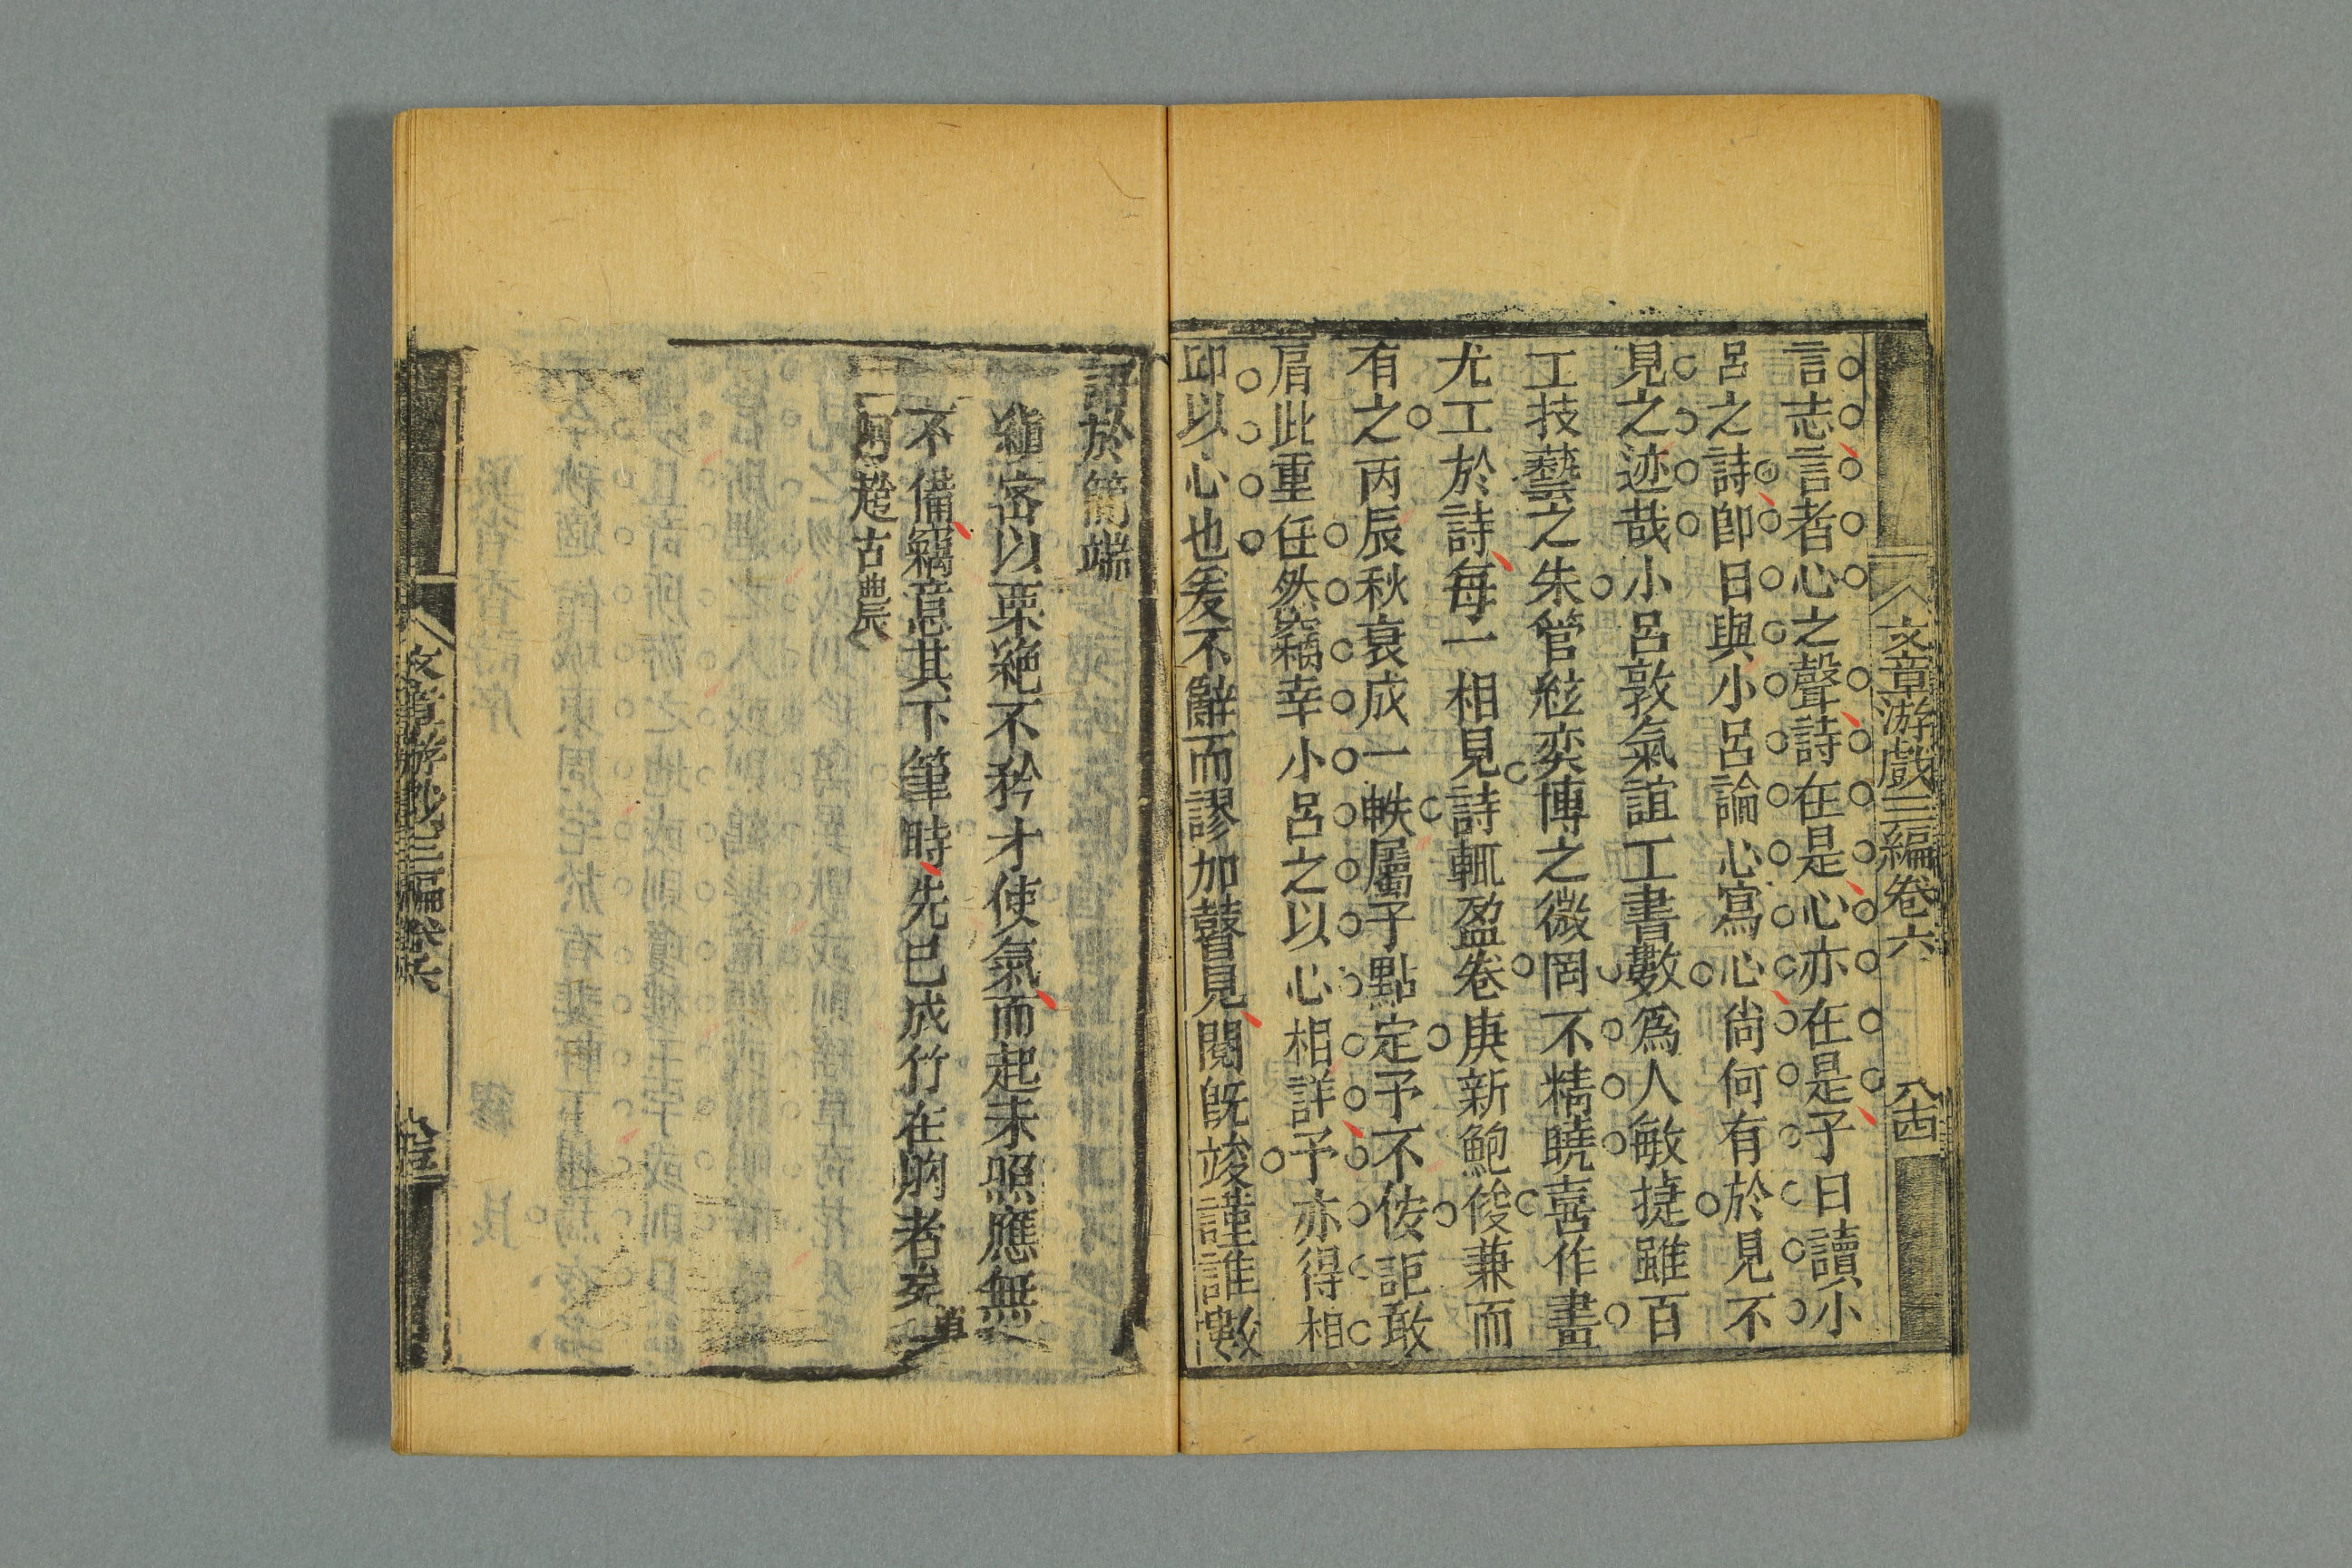 文章游戲三編卷六 八十四
言志言者心之聲詩在是心亦在是予日讀小
呂之詩卽日與小呂論心寫心尙何有於見不
見之迹哉小呂敦氣誼工書數為人敏捷雖百
工技藝之朱管絃奕博之微罔不精曉喜作畫
尤工於詩每一相見詩輒盈卷庚新鮑俊兼而
有之丙辰秋裒成一帙屬予點定予不佞詎敢
肩此重任然竊幸小呂之以心相詳予亦得相
印以心也爰不辭而謬加瞽見閱旣竣謹誰數
語於簡端
縋密以栗絕不矜才使氣而起未照應無
不備竊意其下筆時先已成竹在胸者矣
趁古農
文章游戲三編卷六